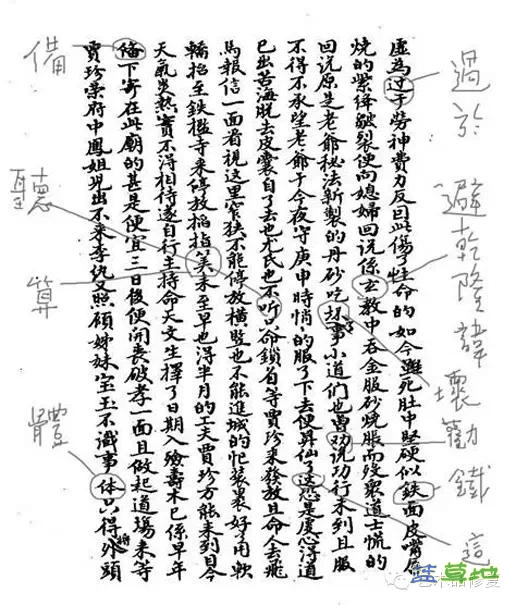 過於
避乾隆諱
壞
勸
鐵
這
虛為过于勞神費力反因此傷了性命的如今雖死肚中堅硬似鉄面皮嘴唇
燒的紫絳皺裂便向媳婦回说係玄教中吞金服砂燒脹而歿衆道士慌的
回说原是老爺秘法新製的丹砂吃坏事小道们也曾劝说功行未到且服
不得不承望老爺于今夜守庚申時悄〻的服了下去便昇仙了这恐是虔心得道
已出苦海脱去皮囊自了去也尤氏也不听只命鎖着等賈珍来發放且命人去飛
馬報信一面看視这里窄狹不能停放横豎也不能進城的忙装裹好了用軟
轎抬至鉄檻寺来停放掐指笇来至早也得半月的工夫賈珍方能来到目今
天氣炎熱實不得相待遂自行主持命天文生擇了日期入殮壽木已係早年
俻下寄在此廟的甚是便宜三日後便開喪破孝一面且做起道場来等
賈珍榮府中鳳姐兒出不来李纨又照顧姊妹宝玉不識事体只得将外頭
備
聽
算
體